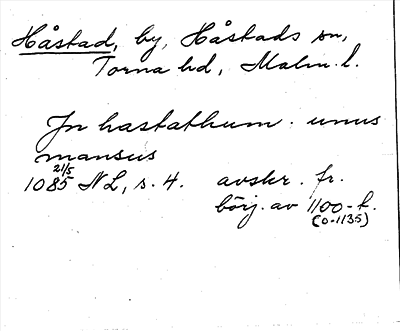 Håstad, by, Håstads sn,
Torna hd, Malm. l.
Jn hastathum. unus
mansus
21/5
1085 NL, s. 4. avskr. fr.
börj. av 1100-t.
(o-1135)